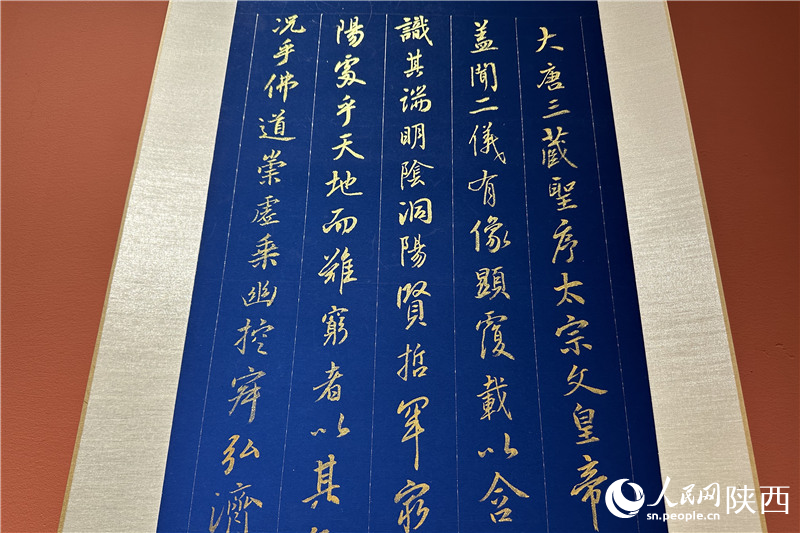 大唐三藏聖序太宗文皇帝
蓋聞二儀有像顯覆載以含
識其端明陰洞陽賢哲罕窮
陽處乎天地而難窮者以其
況乎佛道崇虛乘幽控寂弘濟
人民网 陕西
sn.people.cn